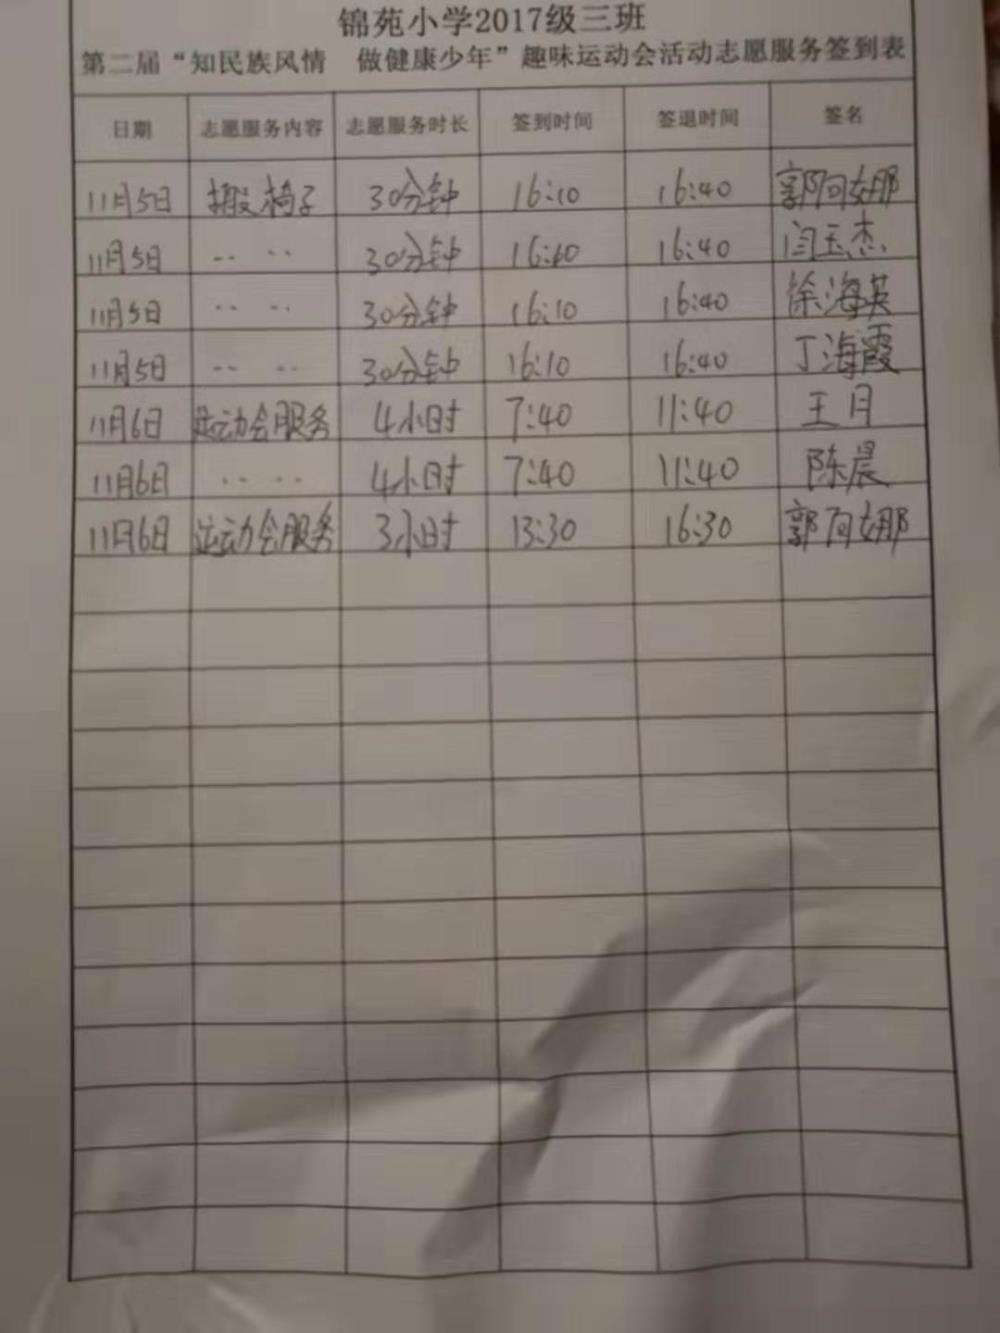 锦苑小学2017级三班
第二届“知民族风情 做健康少年”趣味运动会活动志愿服务签到表
日期 志愿服务内容 志愿服务时长 签到时间 签退时间 签名
11月5日 搬椅子 30分钟 16:10 16:40 郭阿娜
11月5日 ‥ ‥ 30分钟 16:10 16:40 闫玉杰
11月5日 ‥ ‥ 30分钟 16:10 16:40 徐海英
11月5日 ‥ ‥ 30分钟 16:10 16:40 丁海霞
11月6日 运动会服务 4小时 7:40 11:40 王月
11月6日 ‥ ‥ 4小时 7:40 11:40 陈晨
11月6日 运动会服务 3小时 13:30 16:30 郭阿娜